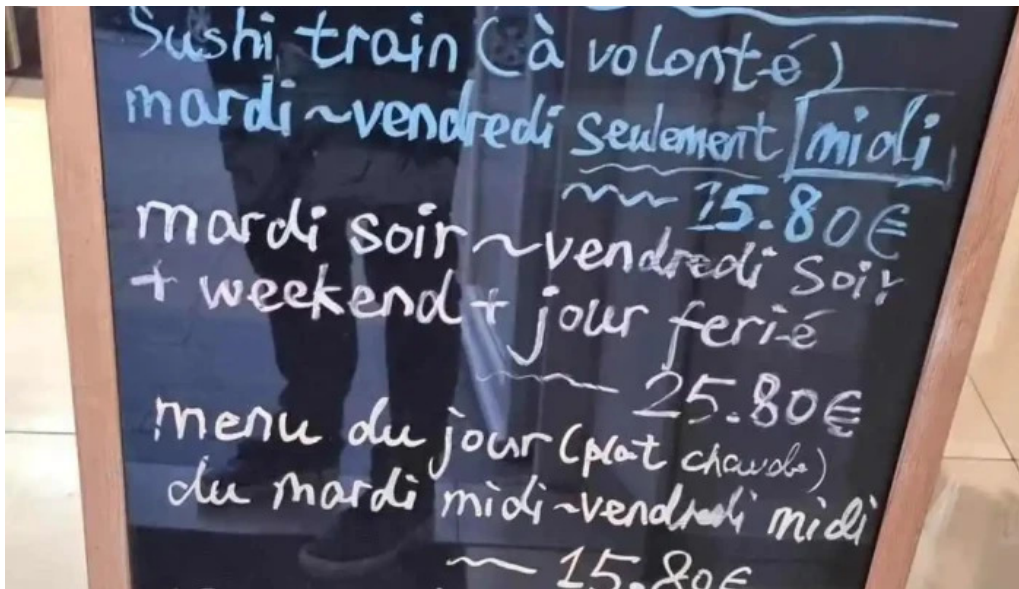 Sushi train (à volonté)
mardi ~ vendredi seulement midi
~~ 15.80€
mardi soir ~ vendredi soir
+ weekend + jour ferié
~~ 25.80€
menu du jour (plat chaude)
du mardi midi ~ vendredi midi
~~ 15.80€